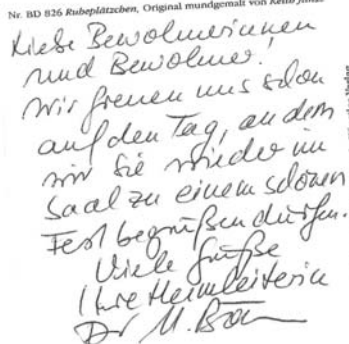 Nr. BD 826 Ruheplätzchen, Original mundgemalt von
Liebe Bewohnerinnen
und Bewohner!
Wir freuen uns schon
auf den Tag, an dem
wir Sie wieder im
Saal zu einem schönen
Fest begrüßen dürfen.
Viele Grüße
Ihre Heimleiterin
Dr. M.